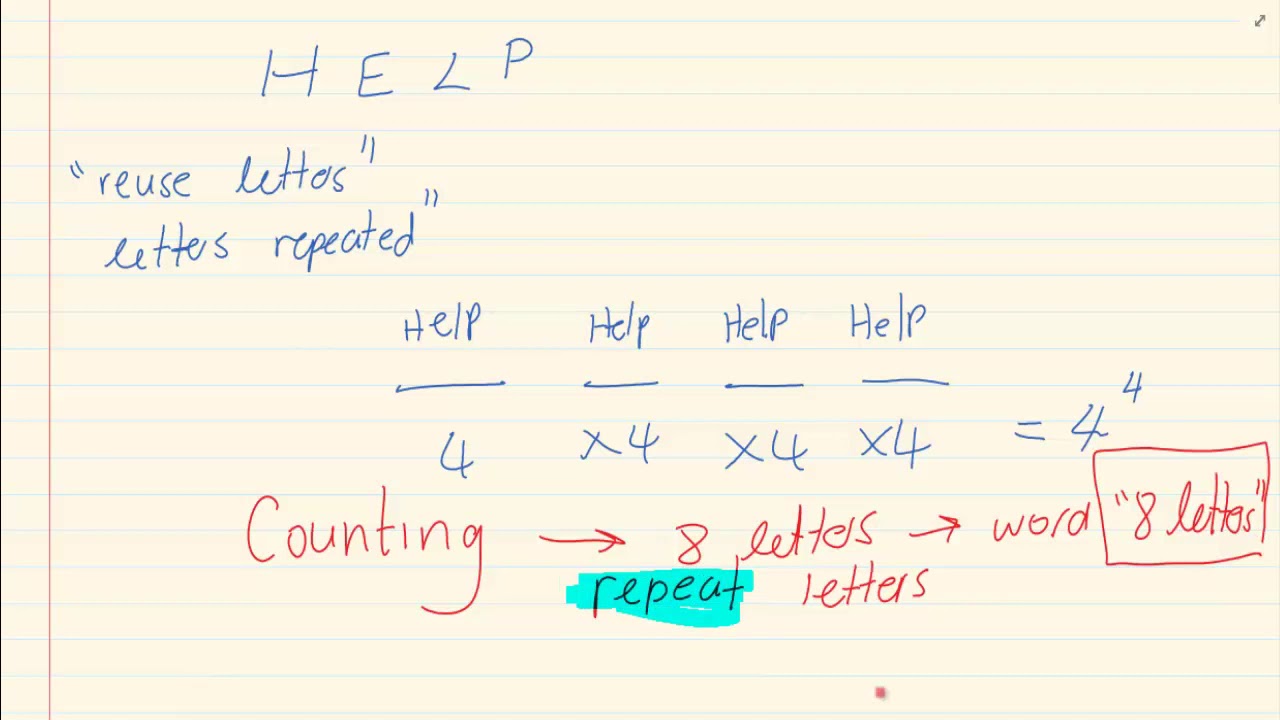 H E L P
"reuse letters"
letters repeated"
Help Help Help Help
4 ×4 ×4 ×4 = 4^4
Counting → 8 letters → word "8 letters"
repeat letters